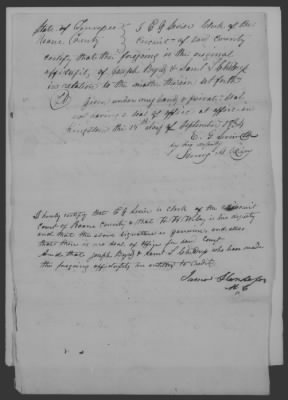 State of Tennessee
Roane County
I E G Sevier Clerk of the
Circuit of said County
certify that the foregoing is the original
affidavit, of Joseph Byrd & Saml S Childress
in relation to the matter therein set forth
Given under my hand & private seal
not having a seal of office at office in
Kingston the 14th day of September 1834
E. G. Sevier Clk
by his deputy
I hereby certify that E G Sevier is clerk of the Circuit
Court of Roane County & that H H Wiley is his deputy
and that the above signature is genuine and also
that there is no seal of office for said Court
And that Joseph Byrd & Saml S Childress who have made
the foregoing affidavits are entitled to credit.